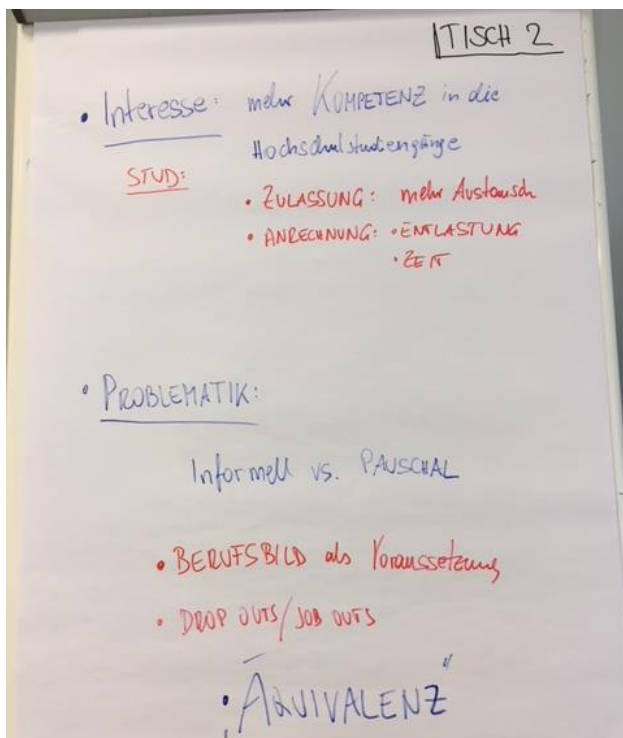 TISCH 2
• Interesse: mehr KOMPETENZ in die
Hochschulstudiengänge
STUD:
• ZULASSUNG: mehr Austausch
• ANRECHNUNG: • ENTLASTUNG
• ZEIT
• PROBLEMATIK:
Informell vs. PAUSCHAL
• BERUFSBILD als Voraussetzung
• DROP OUTS/JOB OUTS
• „ÄQUIVALENZ"